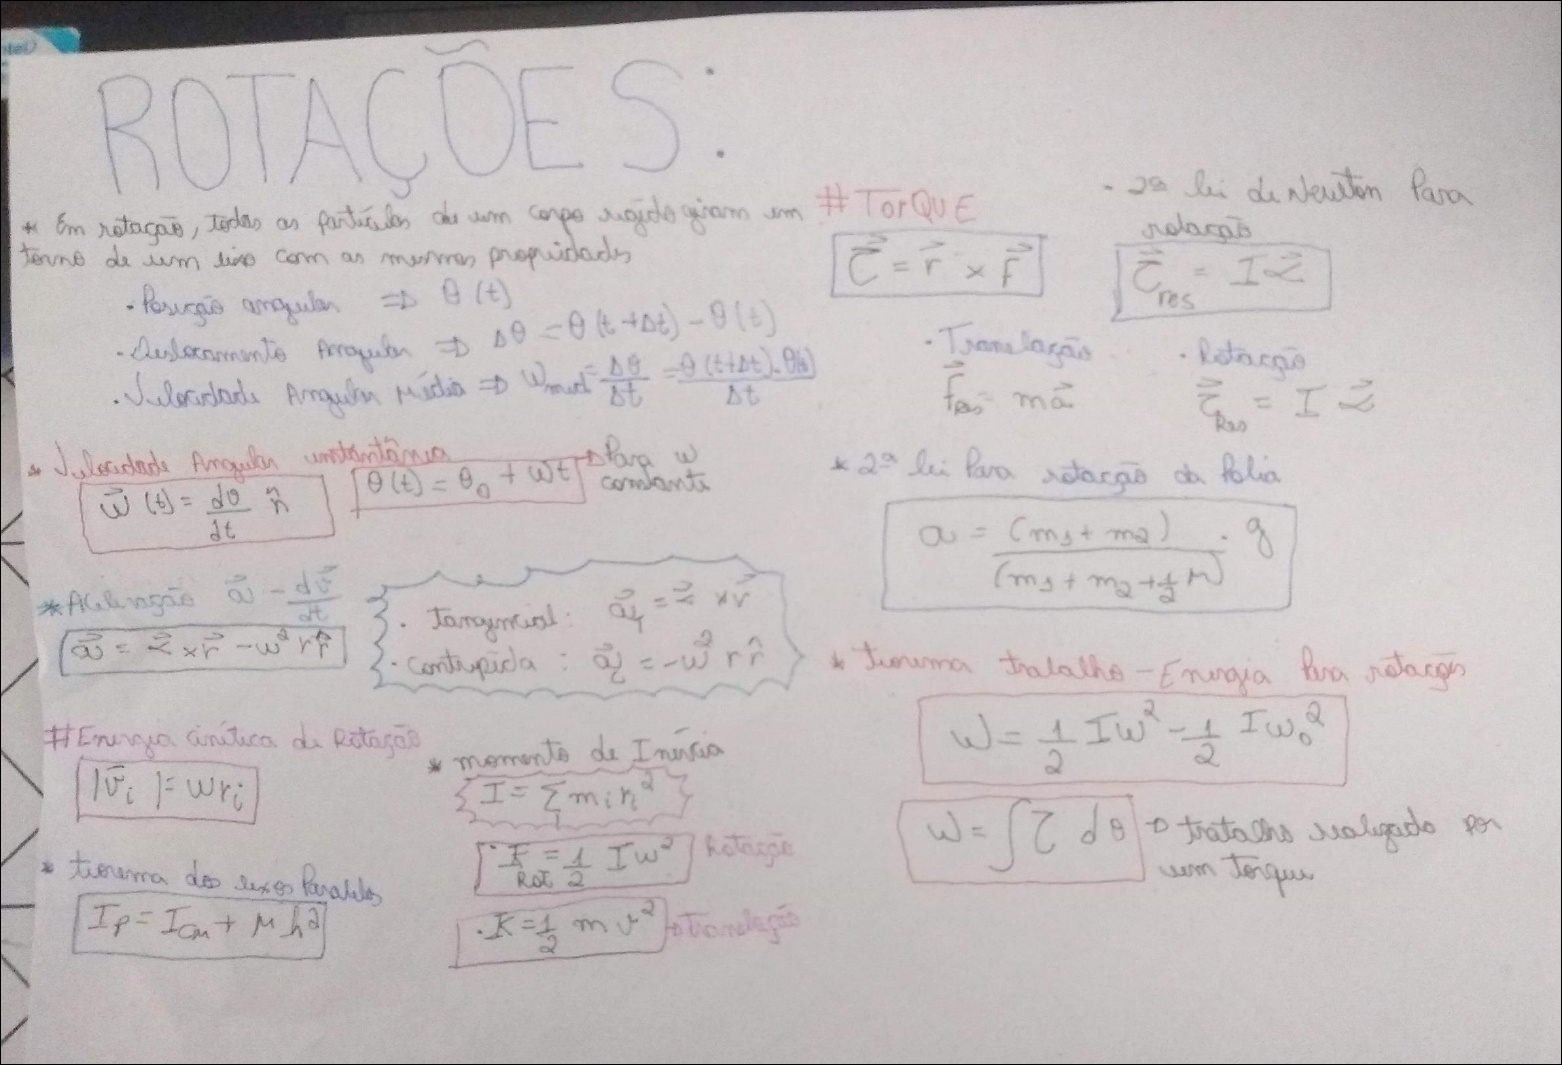 ROTAÇÕES:
* Em rotação, todas as partículas de um corpo rígido giram em
torno de um eixo com as mesmas propriedades
· Posição angular ⇒ θ(t)
· Deslocamento Angular ⇒ Δθ = θ(t+Δt) - θ(t)
· Velocidade Angular Média ⇒ ω med = Δθ/Δt = θ(t+Δt)-θ(t)/Δt
* Velocidade Angular instantânea
ω⃗(t) = dθ/dt n̂
θ(t) = θ₀ + ωt → Para ω
constante
* Aceleração a⃗ = dv⃗/dt
a⃗ = α⃗ × r⃗ - ω² r r̂
· tangencial: a⃗t = α⃗ × r⃗
· centrípeta: a⃗c = -ω² r r̂
#Energia cinética de Rotação
|v⃗i| = ωri
* teorema dos eixos Paralelos
Ip = Icm + Mh²
* momento de Inércia
I = Σ mi ri²
i
· K Rot = 1/2 Iω² Rotação
· K = 1/2 mv² → Translação
# TorQUE
τ⃗ = r⃗ × F⃗
· 2ª lei de Newton Para
rotação
τ⃗res = Iα⃗
· Translação
F⃗Res = ma⃗
· Rotação
τ⃗Res = Iα⃗
* 2ª lei Para rotação da Polia
a = (m1 + m2)/(m1 + m2 + 1/2 M) · g
* teorema trabalho - Energia Para rotações
W = 1/2 Iω² - 1/2 Iω₀²
W = ∫ τ dθ → tratalho realizado por
um torque